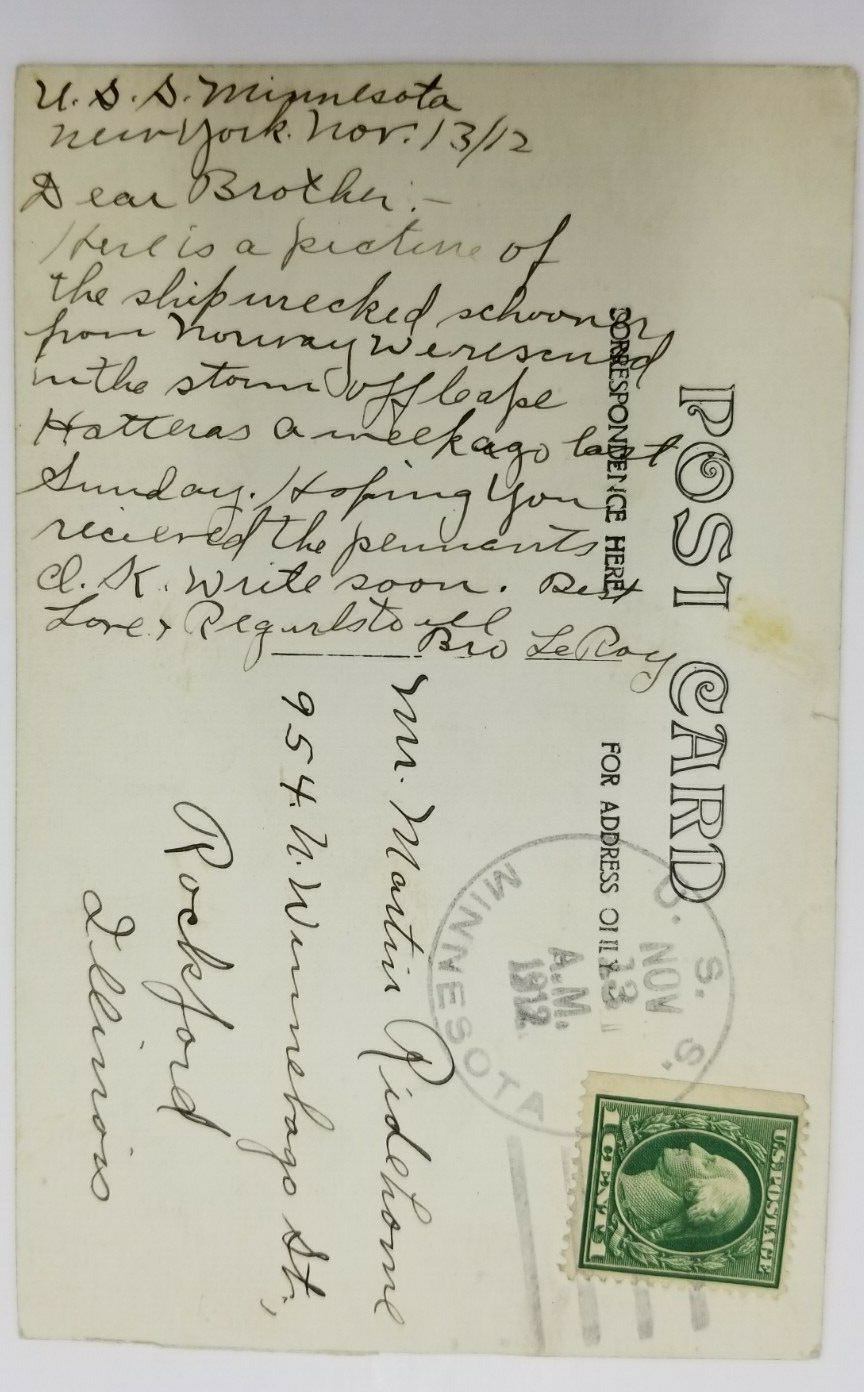 U. S. S. Minnesota
New York. Nov. 13/12
Dear Brother:—
Here is a picture of
the shipwrecked schooner
from Norway we rescued
in the storm off Cape
Hatteras a week ago last
Sunday. Hoping you
recieved the pennants
O. K. Write soon. Best
Love & Regards to all
Bro LeRoy
POST CARD
CORRESPONDENCE HERE
FOR ADDRESS ONLY
Mr. Martin Ridehome
954. N. Winnebago St.,
Rockford
Illinois
U. S. S.
NOV
13
A.M.
1912
MINNESOTA
U.S. POSTAGE
1 CENT 1